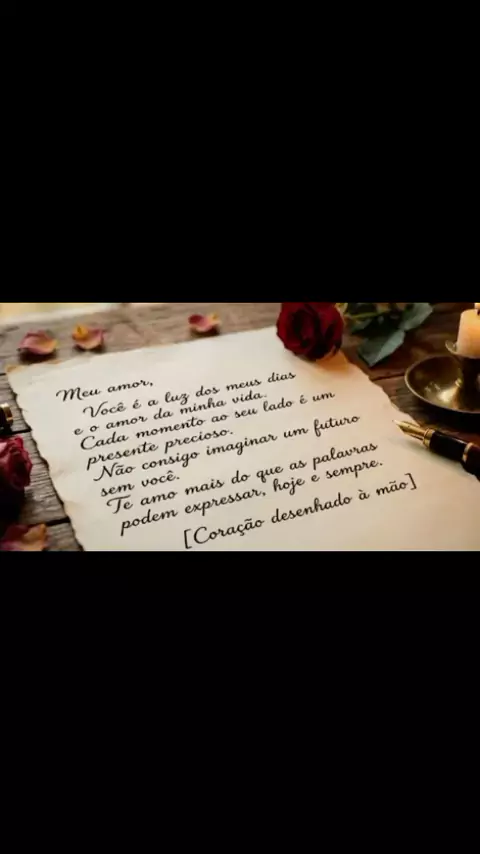 Meu amor,
Você é a luz dos meus dias
e o amor da minha vida.
Cada momento ao seu lado é um
presente precioso.
Não consigo imaginar um futuro
sem você.
Te amo mais do que as palavras
podem expressar, hoje e sempre.
[Coração desenhado à mão]